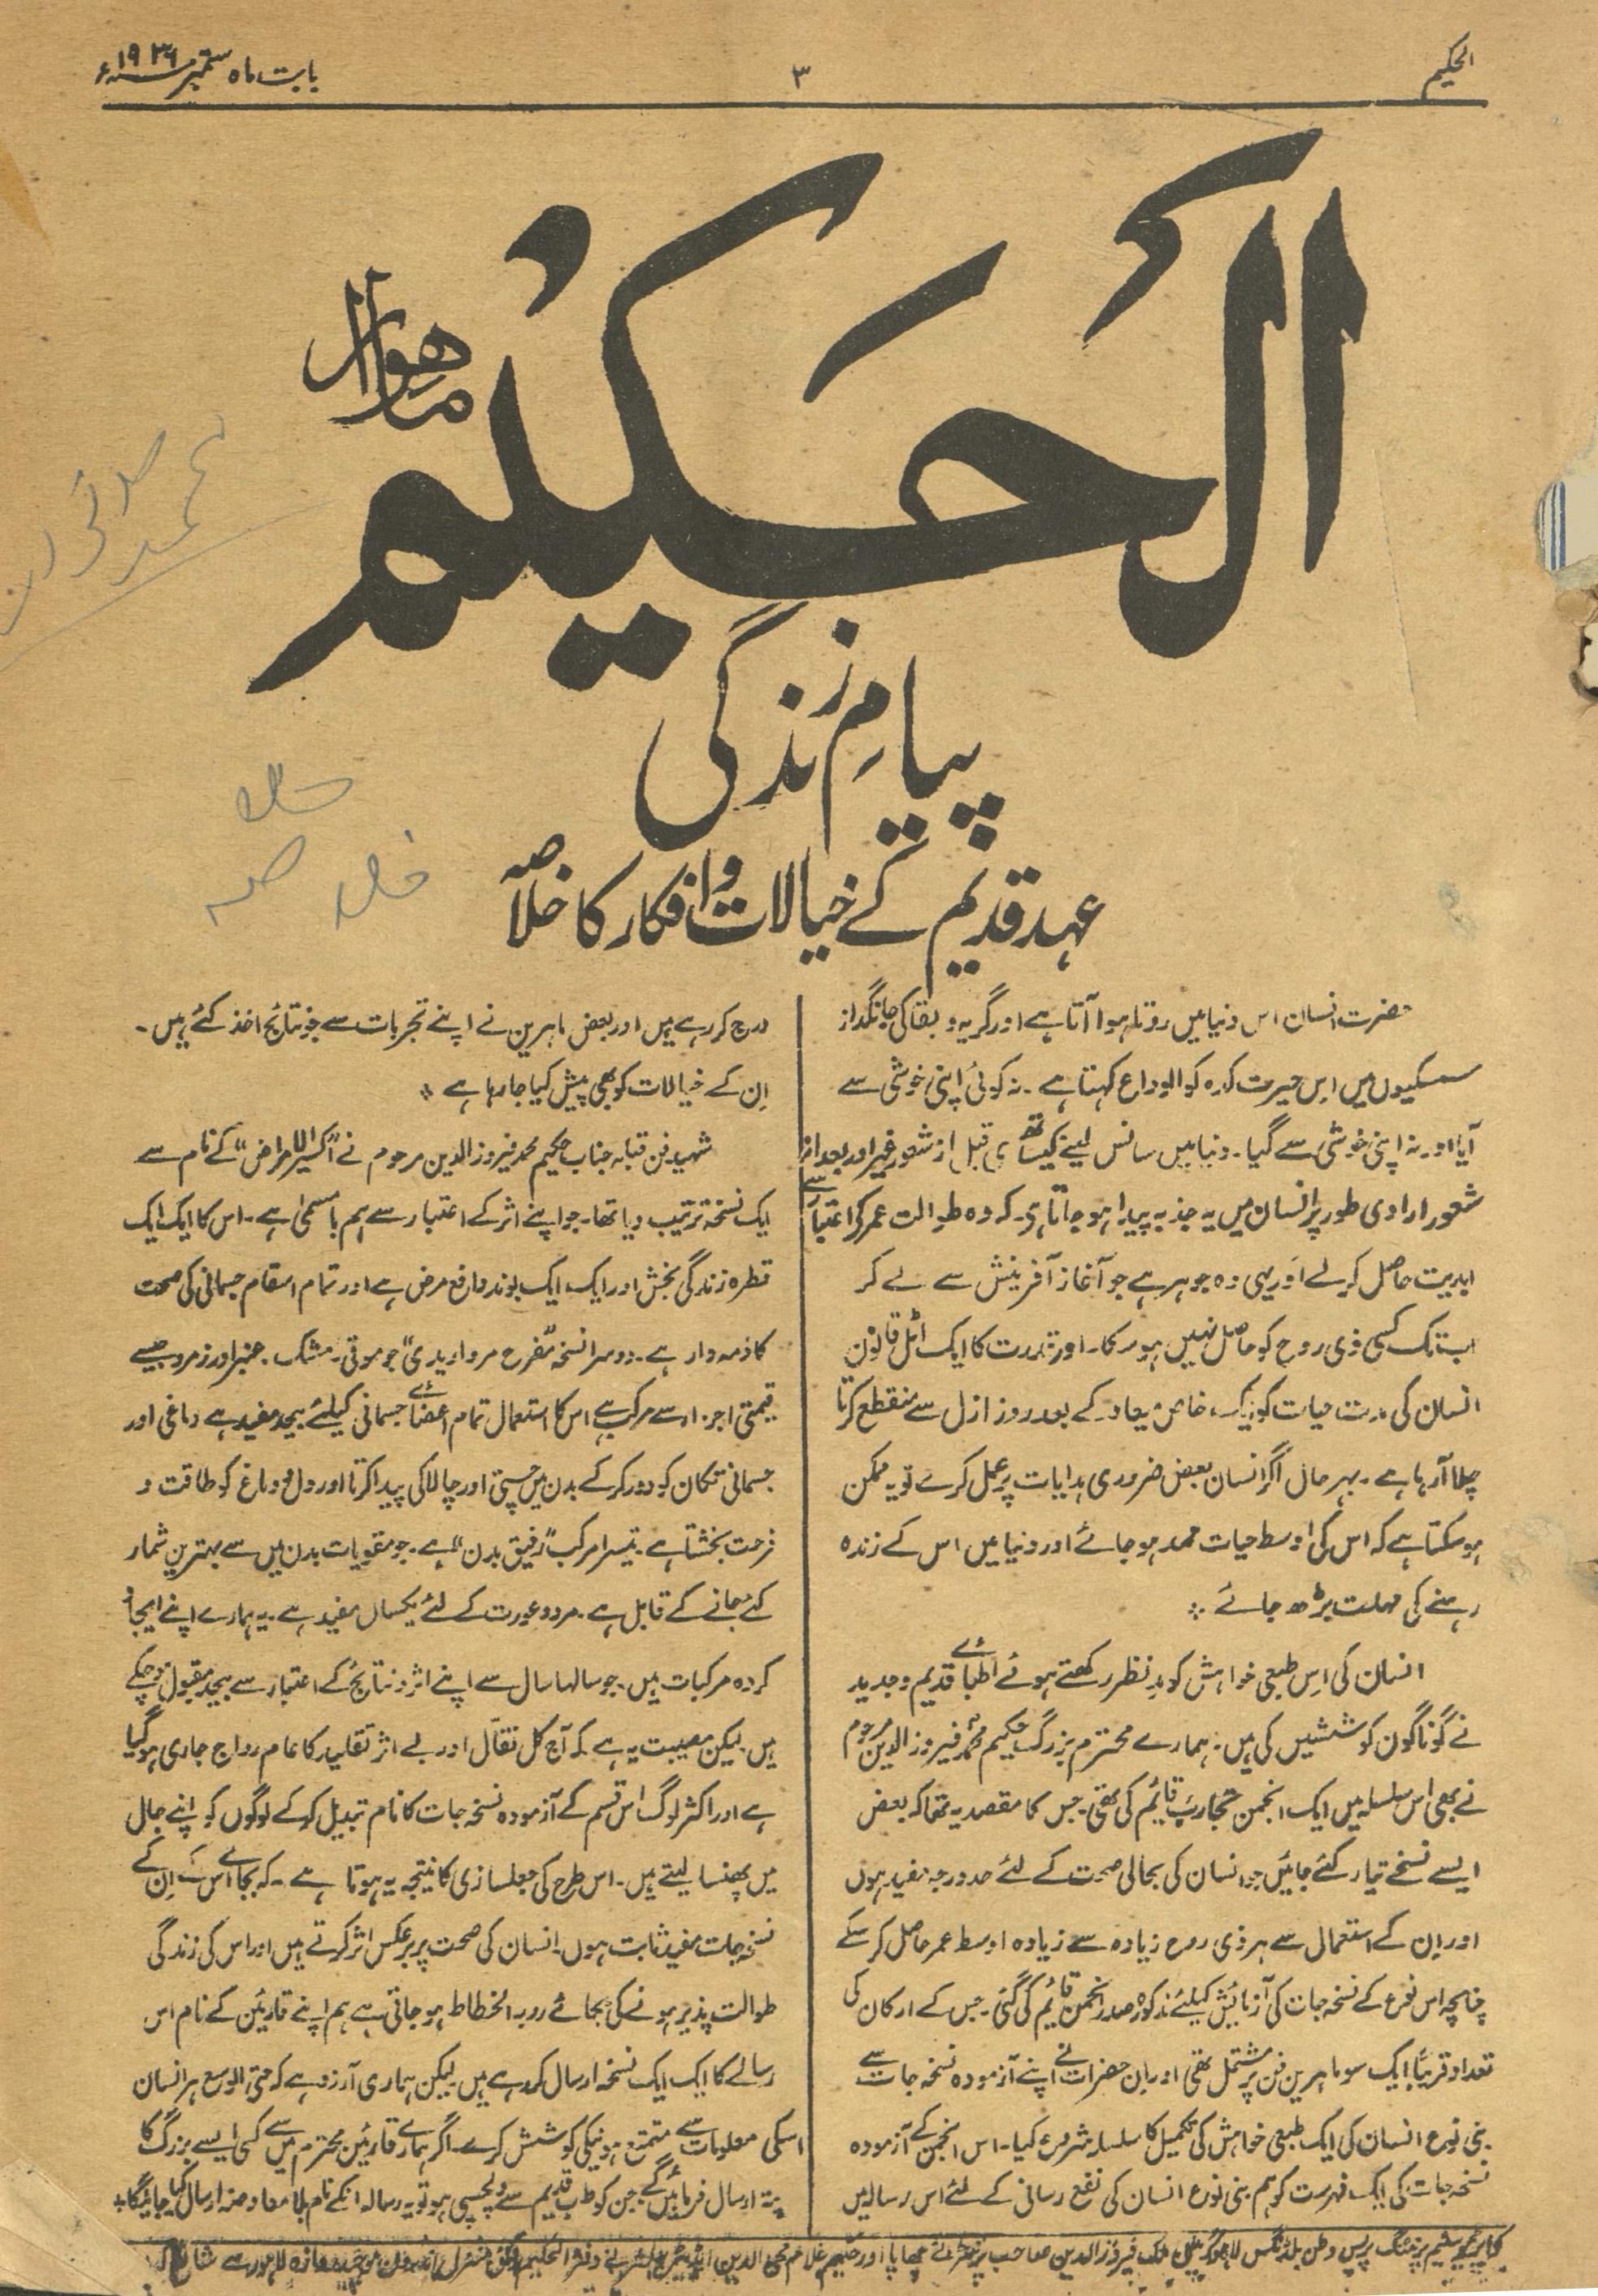 الحکیم
۳
بابت ماہ ستمبر سنہ ۱۹۳۶ء
الحکیم
ماہوار
پیامِ زندگی
عہد قدیم کے خیالات و افکار کا خلاصہ
حضرت انسان اس دنیا میں روتا ہوا آتا ہے اور گریہ و بقا کی جانگداز
سسکیوں میں اس حیرت کدہ کو الوداع کہتا ہے ۔ نہ کوئی اپنی خوشی سے
آیا اور نہ اپنی خوشی سے گیا ۔ دنیا میں سانس لینے کیساتھ ہی قبل از شعور غیر اور بعد از
شعور ارادی طور پر انسان میں یہ جذبہ پیدا ہو جاتا ہی ۔ کہ وہ طوالت عمر کے اعتبار سے
ابدیت حاصل کرلے اور یہی وہ جوہر ہے جو آغاز آفرینش سے لے کر
اب تک کسی ذی روح کو حاصل نہیں ہو سکا ۔ اور قدرت کا ایک اٹل قانون
انسان کی مدت حیات کو ایک خاص میعاد کے بعد روز ازل سے منقطع کرتا
چلا آ رہا ہے ۔ بہر حال اگر انسان بعض ضروری ہدایات پر عمل کرے تو یہ ممکن
ہو سکتا ہے کہ اس کی اوسط حیات ممد ہو جائے اور دنیا میں اس کے زندہ
رہنے کی مہلت بڑھ جائے ۔
انسان کی اِس طبعی خواہش کو مدِ نظر رکھتے ہوئے اطبائے قدیم و جدید
نے گوناگون کوششیں کی ہیں ۔ ہمارے محترم بزرگ حکیم محمد فیروز الدین مرحوم
نے بھی اس سلسلہ میں ایک انجمن تجارب قائیم کی تھی ۔ جس کا مقصد یہ تھا کہ بعض
ایسے نسخے تیار کئے جائیں جو انسان کی بحالی صحت کے لئے حد درجہ مفید ہوں
اور اِن کے استعمال سے ہر ذی روح زیادہ سے زیادہ اوسط عمر حاصل کر سکے
چنانچہ اس نوع کے نسخہ جات کی آزمائیش کیلئے مذکورہ صدر انجمن قائیم کی گئی ۔ جس کے ارکان کی
تعداد قریباً ایک سو ماہرین فن پر مشتمل تھی اور اِن حضرات نے اپنے آزمودہ نسخہ جات سے
بنی نوع انسان کی ایک طبعی خواہش کی تکمیل کا سلسلہ شروع کیا ۔ اس انجمن کے آزمودہ
نسخہ جات کی ایک فہرست کو ہم بنی نوع انسان کی نفع رسانی کے لئے اس رسالہ میں
درج کر رہے ہیں اور بعض ماہرین نے اپنے تجربات سے جو نتایج اخذ کئے ہیں ۔
اِن کے خیالات کو بھی پیش کیا جا رہا ہے ۔
شہید فن قبلہ جناب حکیم محمد فیروز الدین مرحوم نے ”اکسیر الامراض“ کے نام سے
ایک نسخہ ترتیب دیا تھا ۔ جو اپنے اثر کے اعتبار سے اسم بامسمیٰ ہے ۔ اس کا ایک ایک
قطرہ زندگی بخش اور ایک ایک بوند دافع مرض ہے اور تمام اسقام جسمانی کی صحت
کا ذمہ دار ہے ۔ دوسرا نسخہ ”مفرح مرواریدی“ جو موتی ۔ مشک ۔ عنبر اور زمرد جیسے
قیمتی اجزاء سے مرکب ہے اس کا استعمال تمام اعضائے جسمانی کیلئے بیحد مفید ہے دماغی اور
جسمانی تکان کو دور کر کے بدن میں چستی اور چالاکی پیدا کرتا اور دل و دماغ کو طاقت و
فرحت بخشتا ہے ۔ تیسرا مرکب ”رفیق بدن“ ہے ۔ جو مقویات بدن میں سے بہترین شمار
کئے جانے کے قابل ہے ۔ مرد و عورت کے لئے یکساں مفید ہے ۔ یہ ہمارے اپنے ایجاد
کردہ مرکبات ہیں ۔ جو سالہا سال سے اپنے اثر و نتایج کے اعتبار سے بیحد مقبول ہو چکے
ہیں لیکن مصیبت یہ ہے کہ آج کل نقّال اور بے اثر تقلید کا عام رواج جاری ہو گیا
ہے اور اکثر لوگ اس قسم کے آزمودہ نسخہ جات کا نام تبدیل کر کے لوگوں کو اپنے جال
میں پھنسا لیتے ہیں ۔ اس طرح کی جعلسازی کا نتیجہ یہ ہوتا ہے ۔ کہ بجائے اس کے اِن کے
نسخہ جات مفید ثابت ہوں ۔ انسان کی صحت پر برعکس اثر کرتے ہیں اور اس کی زندگی
طوالت پذیر ہونے کی بجائے روبہ انحطاط ہو جاتی ہے ہم اپنے قارئین کے نام اس
رسالے کا ایک ایک نسخہ ارسال کر رہے ہیں لیکن ہماری آرزو ہے کہ حتی الوسع ہر انسان
اسکی معلومات سے متمتع ہونیکی کوشش کرے ۔ اگر ہمارے قارئین محترم میں سے کسی ایسے بزرگ کا
پتہ ارسال فرمائیں گے جن کو طب قدیم سے دلچسپی ہو تو یہ رسالہ انکے نام بلا معاوضہ ارسال کیا جائیگا
پرنٹنگ پریس وطن بلڈنگس لاہور میں ملک فیروز الدین صاحب پرنٹر نے چھاپا اور حکیم غلام محی الدین ایڈیٹر و پبلشر نے دفتر الحکیم اندرون موچی دروازہ لاہور سے شائع کیا